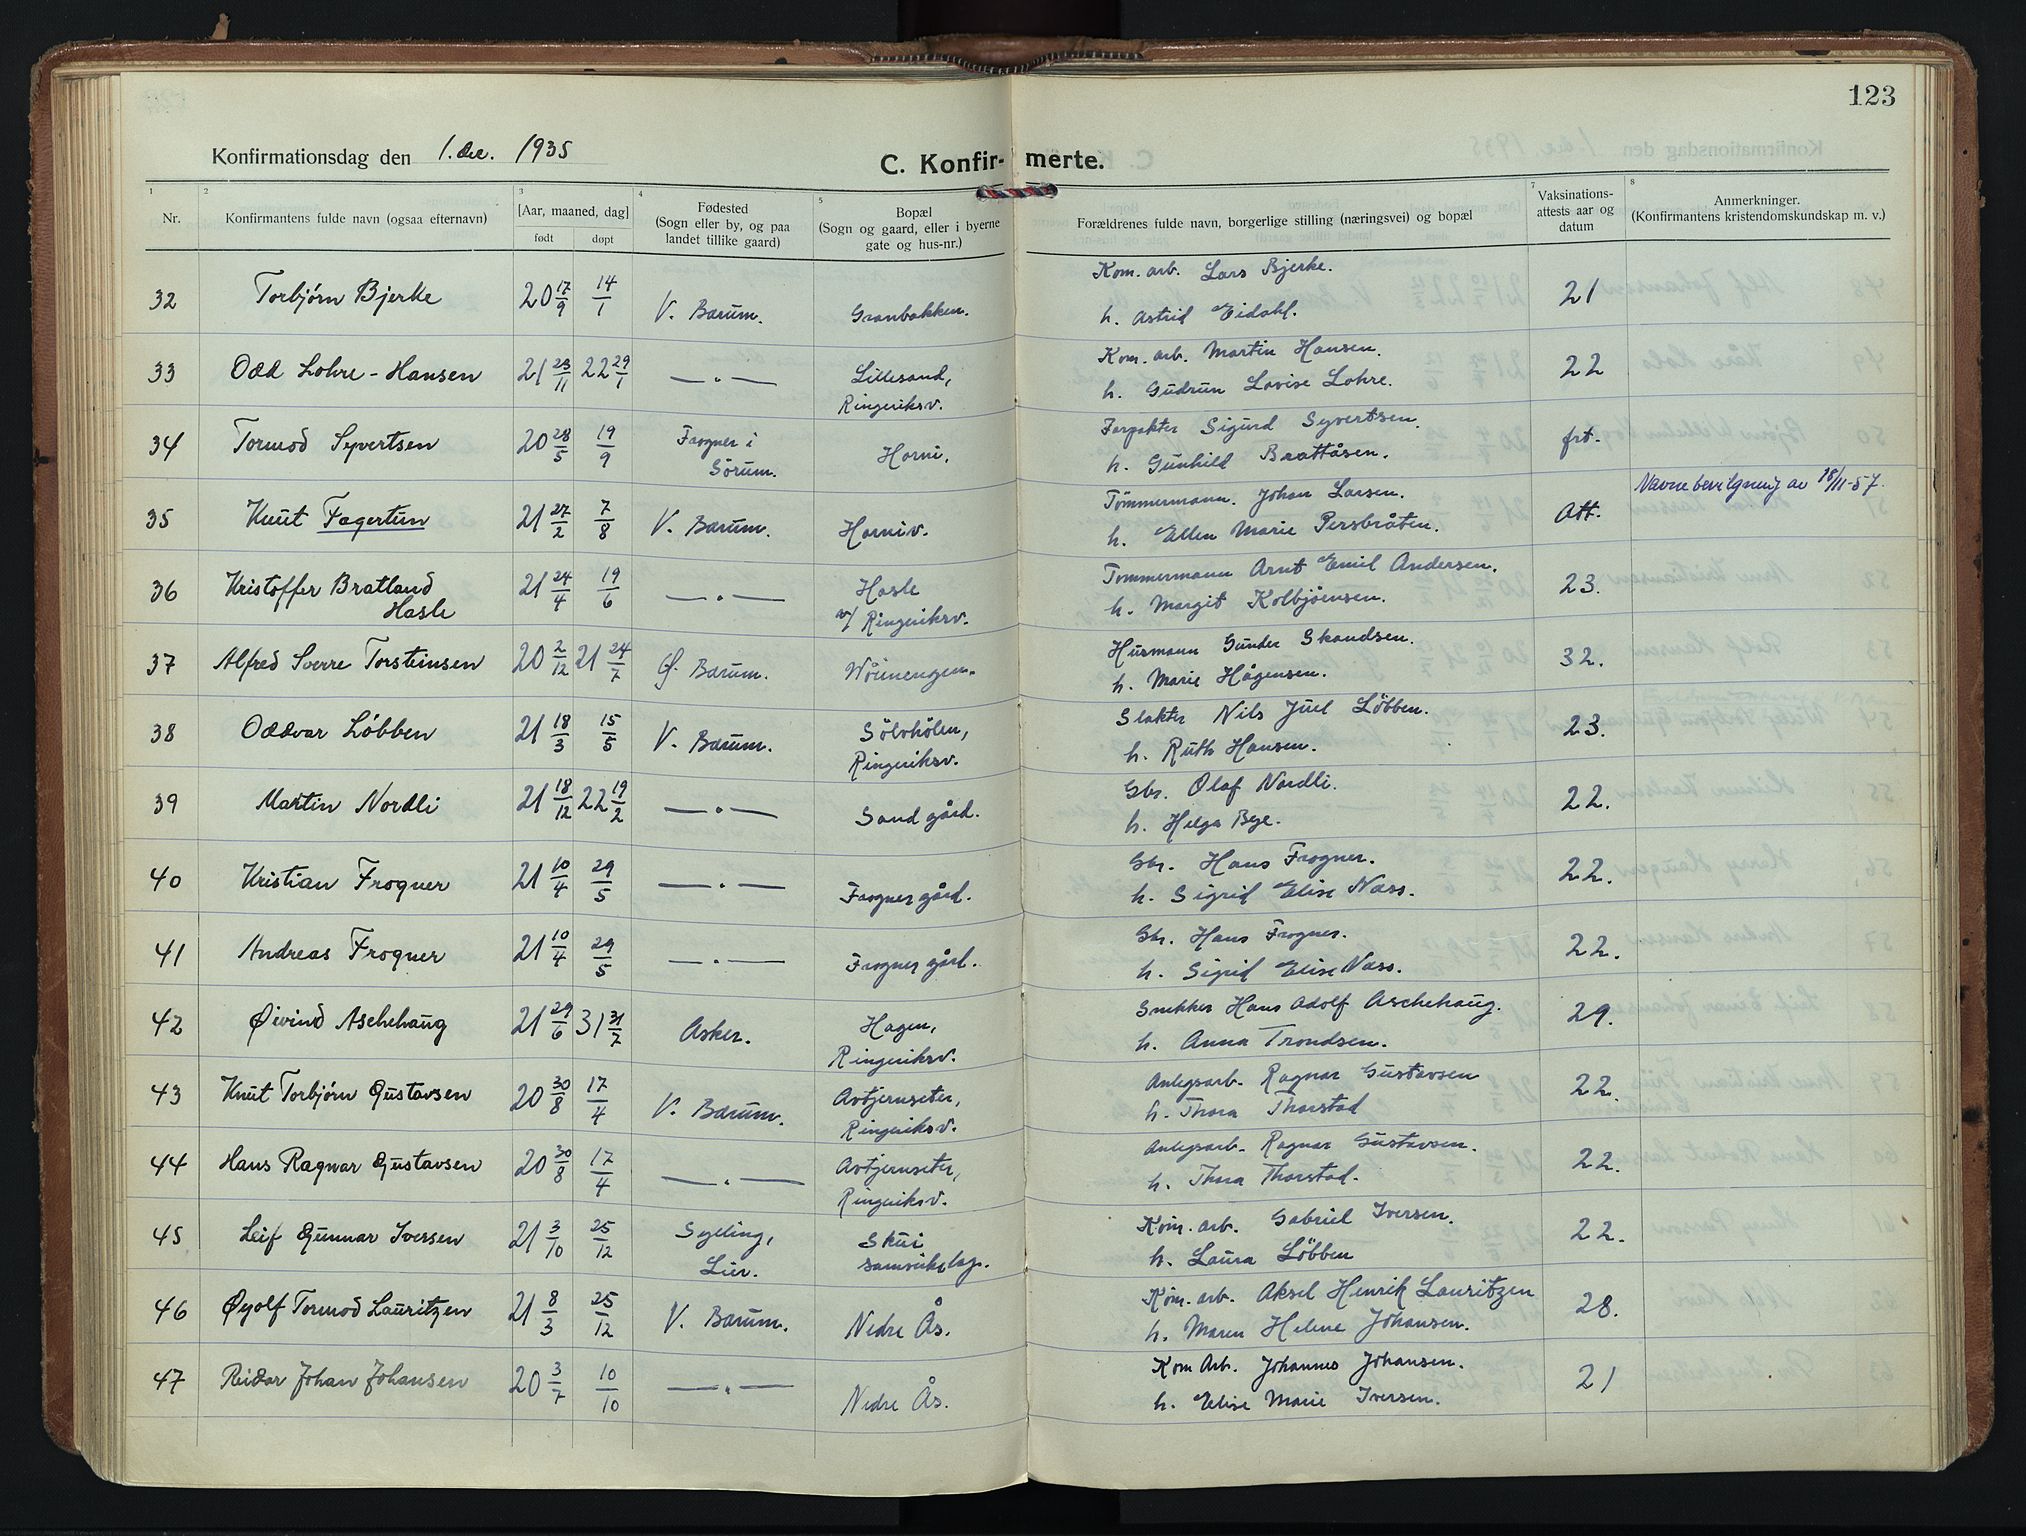 123
Konfirmationsdag den 1. dec. 1935
C. Konfir- merte.
1 2 3 4 5 7 8
Nr.
Konfirmantens fulde navn (ogsaa efternavn)
[Aar, maaned, dag]
født døpt
Fødested
(Sogn eller by, og paa
landet tillike gaard)
Bopæl
(Sogn og gaard, eller i byerne
gate og hus-nr.)
Forældrenes fulde navn, borgerlige stilling (næringsvei) og bopæl
Vaksinations-
attests aar og
datum
Anmerkninger.
(Konfirmantens kristendomskundskap m. v.)
32 Torbjørn Bjerke 20 17/9 14/1 V. Bærum. Granbakken. Kom. arb. Lars Bjerke. 21
h. Astrid Eidahl.
33 Odd Lohre-Hansen 21 23/11 22 29/1 — " — Lillesand, Kom. arb. Martin Hansen. 22
Ringeriksv. h. Gudrun Lovise Lohre.
34 Tormod Syvertsen 20 28/5 19/9 Frogner i Horni, Forpakter Sigurd Syvertsen. frt.
Sørum. h. Gunhild Brattåsen.
35 Knut Fagertun 21 27/2 7/8 V. Bærum. Horniv. Tömmermann. Johan Larsen. Att. Navnebevilgning av 18/11-57.
h. Ellen Marie Persbråten.
36 Kristoffer Bratland 21 24/4 19/6 — " — Hasle Tommermann Arnt Emil Andersen. 23.
Hasle v/ Ringeriksv. h. Margit Kolbjørnsen.
37 Alfred Sverre Torsteinsen 20 2/12 21 24/7 Ø. Bærum. Wøienengen. Husmann Gunder Skandsen. 32.
h. Marie Hågensen.
38 Oddvar Løbben 21 18/3 15/5 V. Bærum. Sölvhölen, Slakter Nils Juel Löbben. 23.
Ringeriksv. h. Ruth Hansen.
39 Martin Nordli 21 18/12 22 19/2 — " — Sand gård. Gbr. Olaf Nordli. 22.
h. Helga Bye.
40 Kristian Frogner 21 10/4 29/5 — " — Frogner gård. Gbr. Hans Frogner. 22.
h. Sigrid Elise Næss.
41 Andreas Frogner 21 10/4 29/5 — " — Frogner gård. Gbr. Hans Frogner. 22.
h. Sigrid Elise Næss.
42 Øivind Aschehaug 21 29/6 31 31/7 Asker. Hagen, Snekker Hans Adolf Aschehaug. 29.
Ringeriksv. h. Anna Trondsen.
43 Knut Torbjørn Gustavsen 20 30/8 17/4 V. Bærum. Avtjernseter, Anlegsarb. Ragnar Gustavsen 22.
Ringeriksv. h. Thora Thorstad
44 Hans Ragnar Gustavsen 20 30/8 17/4 — " — Avtjernseter, Anlegsarb. Ragnar Gustavsen. 22.
Ringeriksv. h. Thora Thorstad.
45 Leif Gunnar Iversen 21 3/10 25/12 Sylling, Skui Kom. arb. Gabriel Iversen. 22.
Lier. samvirkelag. h. Laura Löbben
46 Øyolf Tormod Lauritzen 21 8/3 25/12 V. Bærum. Nedre Ås. Kom. arb. Aksel Henrik Lauritzen 28.
h. Maren Helene Johansen.
47 Reidar Johan Johansen 20 3/7 10/10 — " — Nedre Ås. Kom Arb. Johannes Johansen. 21
h. Elise Marie Iversen.